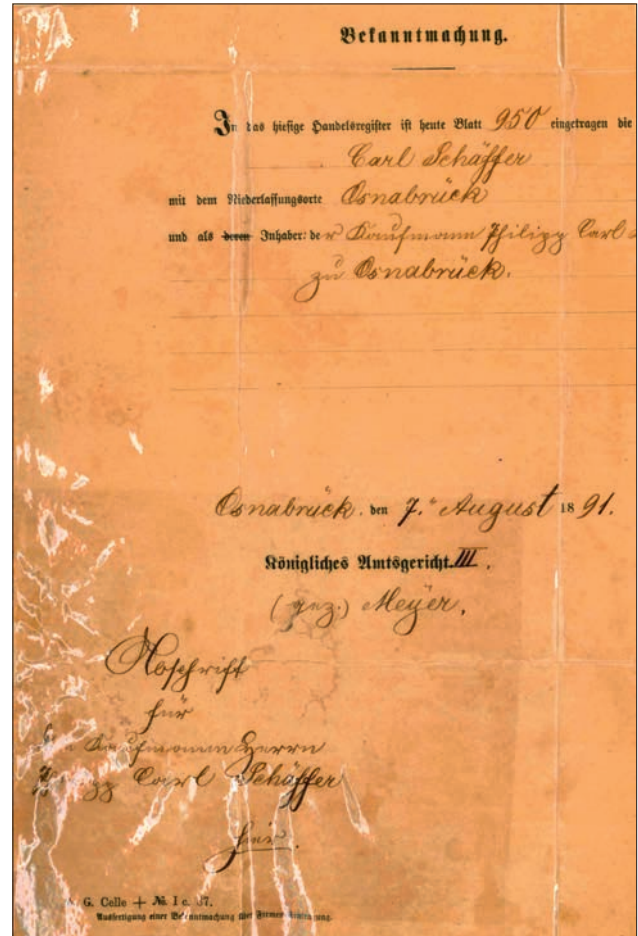 Bekanntmachung.
In das hiesige Handelsregister ist heute Blatt 950 eingetragen die
Carl Schäffer
mit dem Niederlassungsorte Osnabrück
und als deren Inhaber: der Kaufmann Philipp Carl
zu Osnabrück.
Osnabrück. den 7. August 1891.
Königliches Amtsgericht III.
(gez.) Meyer.
Abschrift
für
Kaufmann Herrn
Carl Schäffer
hier.
G. Celle + № I c. 37.
Ausfertigung einer Bekanntmachung über Firmen-Eintragung.